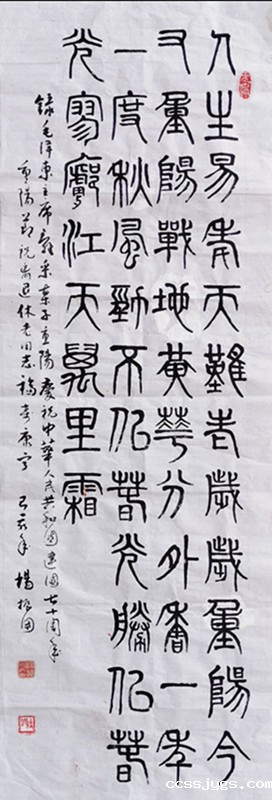 人生易老天難老歲歲重陽今
又重陽戰地黃華分外香一年
一度秋風勁不似春光勝似春
光寥廓江天萬里霜
錄毛澤東主席詞采桑子重陽慶祝中華人民共和國建國七十周年
重陽節祝離退休老同志福壽康寧 己亥年 楊
ccssjygs.com